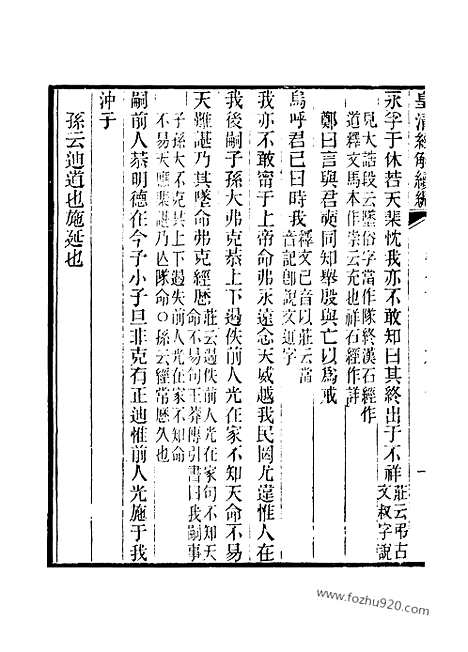 皇清經解續編
永孚于休若天棐忱我亦不敢知曰其終出于不祥莊云弔古文叔字說
見大誥段云墜俗字當作隊終漢石經作
道釋文馬本作崇云充也祥石經作詳
鄭曰言與君奭同知舉殷與亡以為戒
烏呼君已曰時我釋文已音以莊云當音記卽說文䢋字
我亦不敢甯于上帝命弗永遠念天威越我民罔尤違惟人在
我後嗣子孫大弗克恭上下遏佚前人光在家不知天命不易
天難諶乃其墜命弗克經歷莊云遏佚前人光在家句不知天命不易句王莽傳引書曰我嗣事
子孫大不克共上下遏失前人光在家不知命
不易天應棐諶乃亾隊命○孫云經常歷久也
嗣前人恭明德在今予小子旦非克有正迪惟前人光施于我
沖子
孫云迪道也施延也
www.fozhu920.com